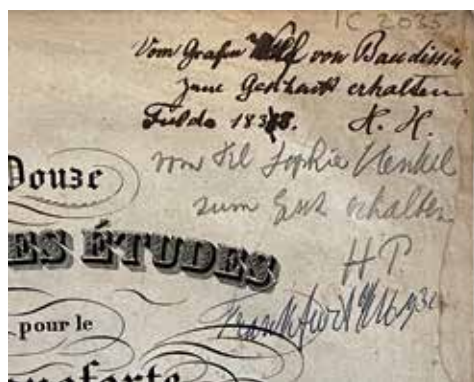 IC 2035
Vom Grafen Wolf von Baudissin
zum Geschenk erhalten
Fulda 1838. H. H.
von Frl Sophie Henkel
zum Gesch erhalten
H P.
Frankfurt
Douze
ES ÉTUDES
pour le
anoforte